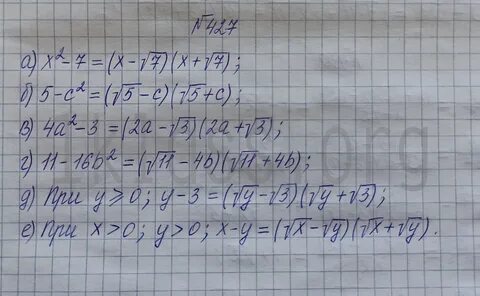 №427
а) x²-7=(x-√7)(x+√7);
б) 5-c²=(√5-c)(√5+c);
в) 4a²-3=(2a-√3)(2a+√3);
г) 11-16b²=(√11-4b)(√11+4b);
д) При y⩾0; y-3=(√y-√3)(√y+√3);
е) При x>0; y>0; x-y=(√x-√y)(√x+√y).